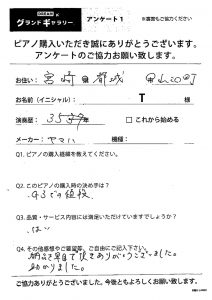 グランドギャラリー アンケート1 ※裏面もご協力ください
ピアノ購入いただき誠にありがとうございます。
アンケートのご協力お願い致します。
お住い: 宮崎 県 都城 町
お名前(イニシャル): T 様
演奏歴: 35 年 □ これから始める
メーカー: ヤマハ 機種:
Q1. ピアノの購入経緯を教えてください。
Q2. このピアノの購入時の決め手は?
Q3. 品質・サービス内容には満足いただけていますでしょうか?
はい
Q4. その他感想やご要望等、ご自由にご記入下さい。
納品を早目て頂きありがとうございました。
助かりました。
ご協力ありがとうございました。今後ともよろしくお願い致します。